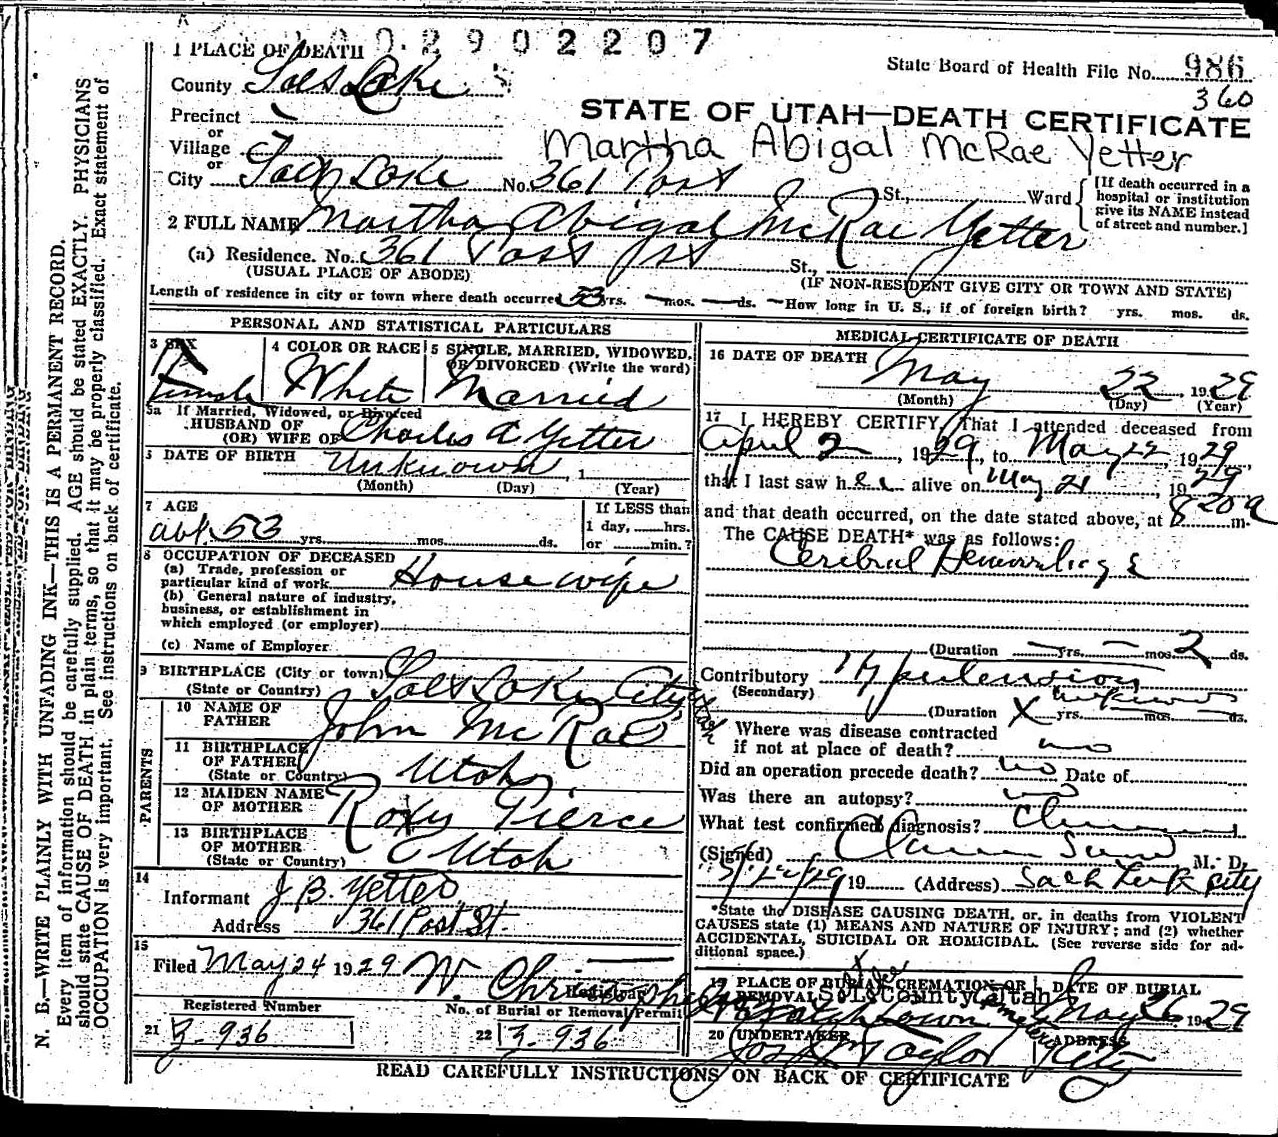 2902207
1 PLACE OF DEATH
State Board of Health File No. 986
360
County Salt Lake
STATE OF UTAH—DEATH CERTIFICATE
Precinct
or
Village
or
Martha Abigal McRae Yetter
City Salt Lake No. 361 Post St., Ward
[If death occurred in a hospital or institution give its NAME instead of street and number.]
2 FULL NAME Martha Abigal McRae Yetter
(a) Residence. No. 361 Post St St.,
(USUAL PLACE OF ABODE) (IF NON-RESIDENT GIVE CITY OR TOWN AND STATE)
Length of residence in city or town where death occurred 53 yrs. — mos. — ds. — How long in U. S., if of foreign birth? yrs. mos. ds.
PERSONAL AND STATISTICAL PARTICULARS
3 SEX
Female
4 COLOR OR RACE
White
5 SINGLE, MARRIED, WIDOWED, OR DIVORCED (Write the word)
Married
5a If Married, Widowed, or Divorced
HUSBAND OF
(OR) WIFE OF Charles A Yetter
DATE OF BIRTH Unknown, 1
(Month) (Day) (Year)
7 AGE
abt 53 yrs. mos. ds.
If LESS than
1 day, hrs.
or min.?
8 OCCUPATION OF DECEASED
(a) Trade, profession or
particular kind of work Housewife
(b) General nature of industry,
business, or establishment in
which employed (or employer)
(c) Name of Employer
9 BIRTHPLACE (City or town) Salt Lake City
(State or Country) Utah
PARENTS
10 NAME OF
FATHER John McRae
11 BIRTHPLACE
OF FATHER
(State or Country) Utah
12 MAIDEN NAME
OF MOTHER Roxy Pierce
13 BIRTHPLACE
OF MOTHER
(State or Country) Utah
14
Informant J B. Yetter
Address 361 Post St.
15
Filed May 24 1929 W. Christopherson
Registrar
Registered Number
21 Z-936
No. of Burial or Removal Permit
22 Z-936
MEDICAL CERTIFICATE OF DEATH
16 DATE OF DEATH
May 22 1929
(Month) (Day) (Year)
17 I HEREBY CERTIFY, That I attended deceased from
April 2, 1929, to May 22, 1929,
that I last saw her alive on May 21, 1929
and that death occurred, on the date stated above, at 8 20 a m.
The CAUSE DEATH* was as follows:
Cerebral Hemorrhage
(Duration — yrs. — mos. 2 ds.
Contributory Hypertension
(Secondary)
(Duration X yrs. unknown mos. ds.
Where was disease contracted
if not at place of death? no
Did an operation precede death? no Date of
Was there an autopsy? no
What test confirmed diagnosis?
(Signed) M. D.
5/22/29 19 (Address) Salt Lake City
*State the DISEASE CAUSING DEATH, or, in deaths from VIOLENT
CAUSES state (1) MEANS AND NATURE OF INJURY; and (2) whether
ACCIDENTAL, SUICIDAL OR HOMICIDAL. (See reverse side for ad-
ditional space.)
19 PLACE OF BURIAL, CREMATION, OR REMOVAL
Salt Lake County, Utah
Cemetery
DATE OF BURIAL
May 26 1929
20 UNDERTAKER
Taylor
ADDRESS
City
READ CAREFULLY INSTRUCTIONS ON BACK OF CERTIFICATE
N. B.—WRITE PLAINLY WITH UNFADING INK—THIS IS A PERMANENT RECORD.
Every item of information should be carefully supplied. AGE should be stated EXACTLY. PHYSICIANS
should state CAUSE OF DEATH in plain terms, so that it may be properly classified. Exact statement of
OCCUPATION is very important. See instructions on back of certificate.